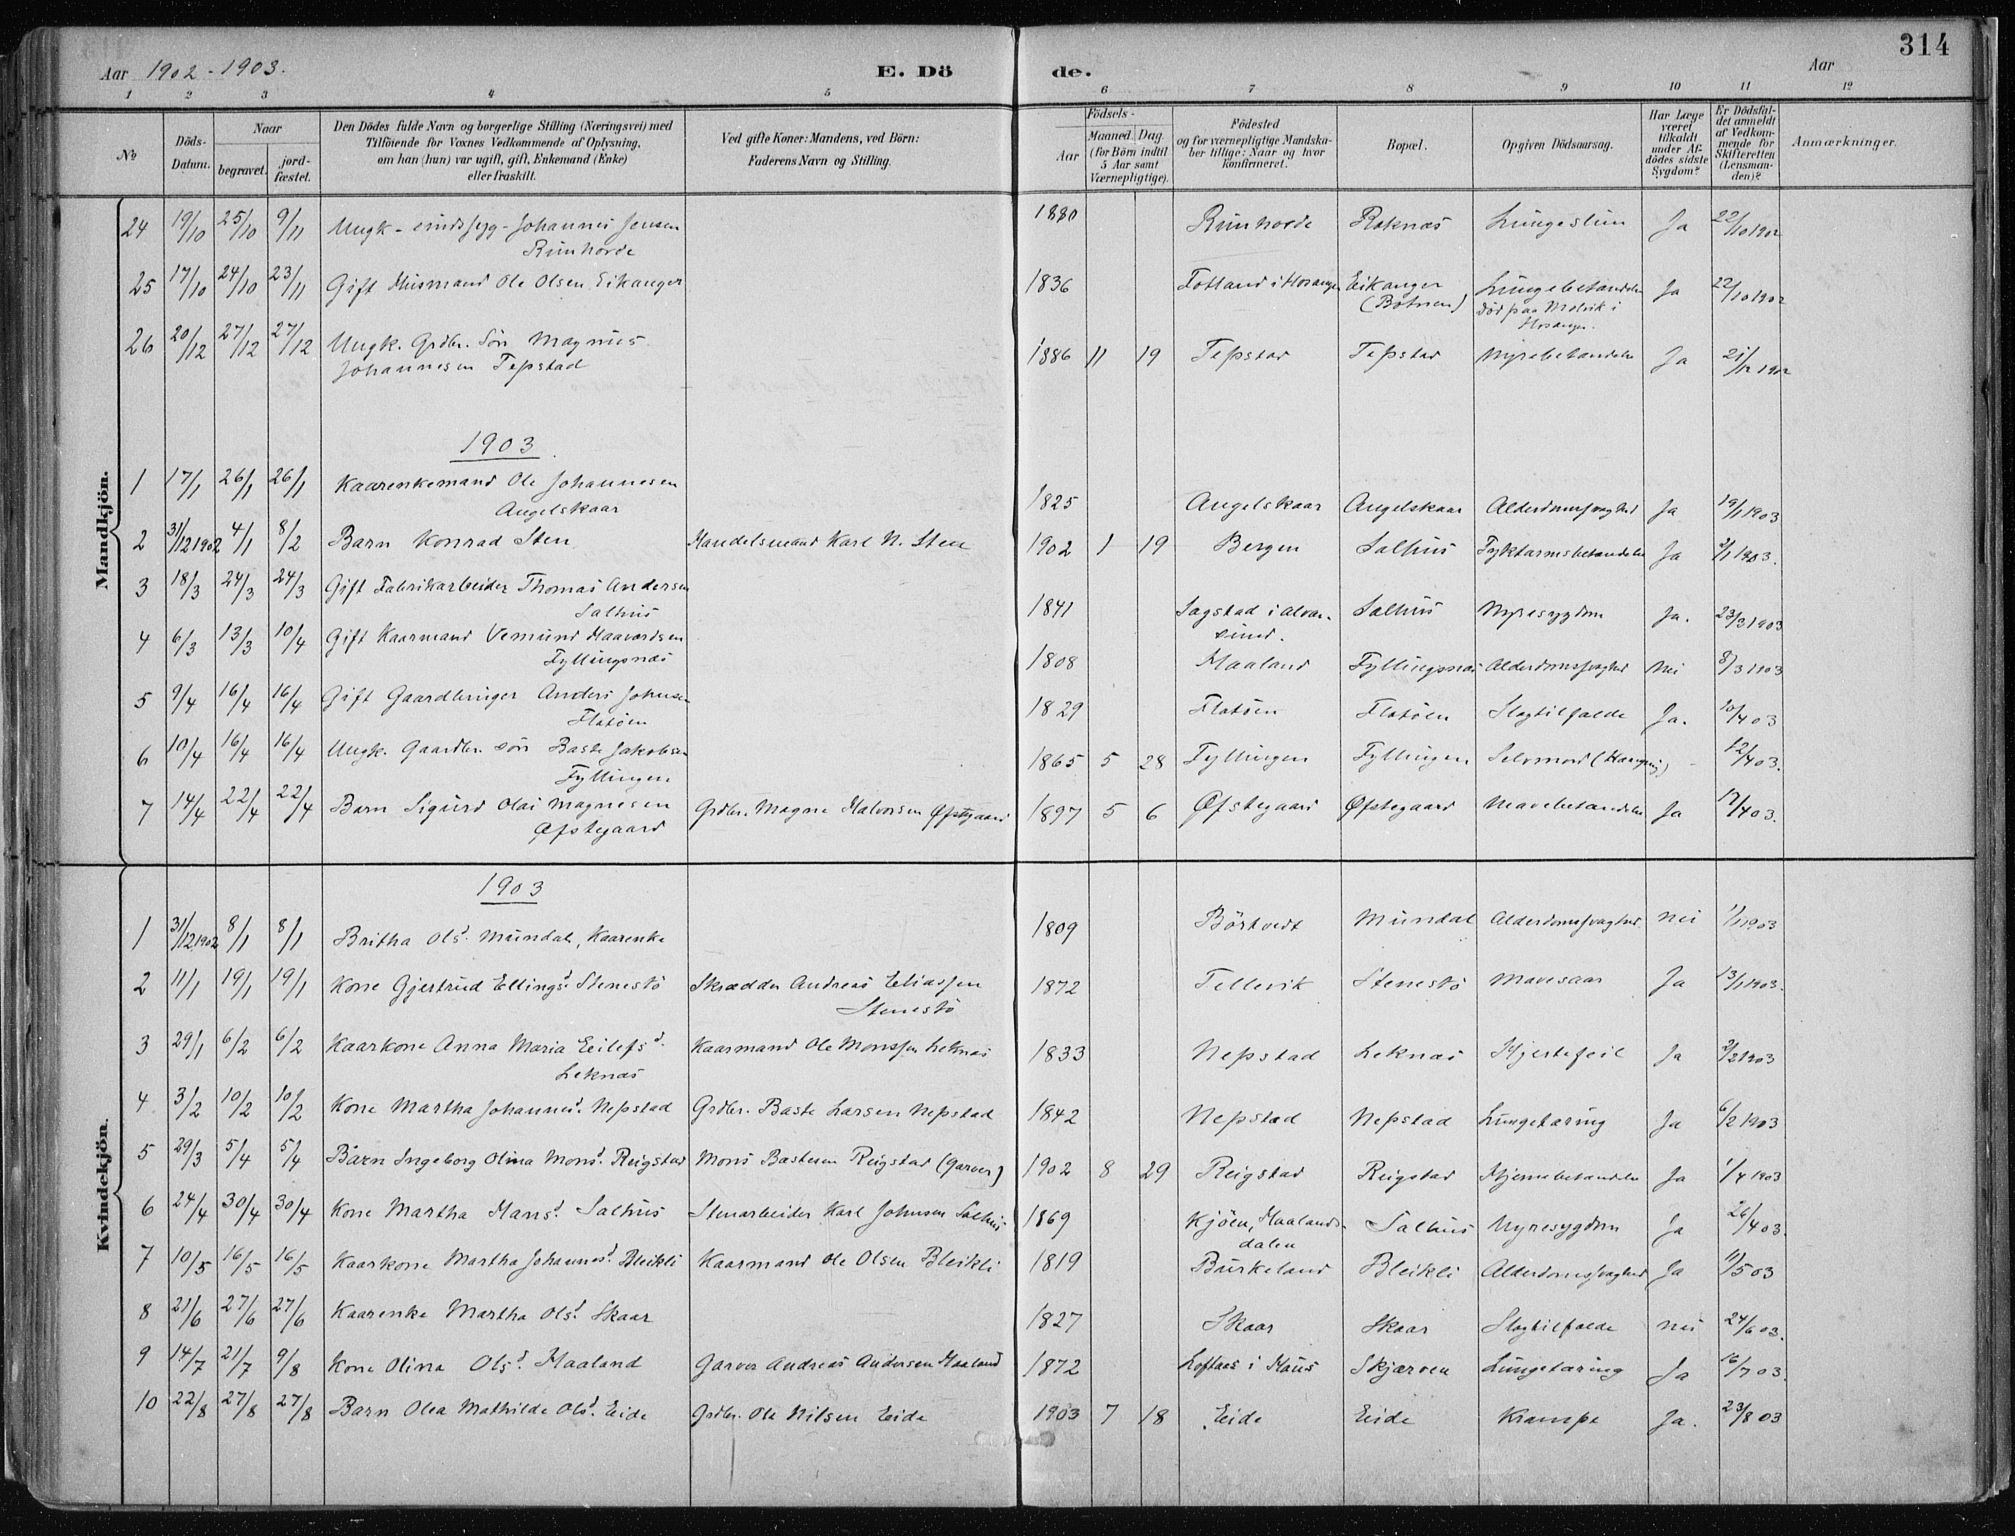 314
Aar 1902 - 1903. E. Dö de. Aar
1 2 3 4 5 6 7 8 9 10 11 12
No
Döds-Datum.
Naar
begravet.
jord-fæstet.
Den Dödes fulde Navn og borgerlige Stilling (Næringsvei) med
Tilföiende for Voxnes Vedkommende af Oplysning,
om han (hun) var ugift, gift, Enkemand (Enke)
eller fraskilt.
Ved gifte Koner: Mandens, ved Börn:
Faderens Navn og Stilling.
Födsels-
Aar
Maaned. Dag
(for Börn indtil
5 Aar samt
Værnepligtige).
Födested
og for værnepligtige Mandska-
ber tillige: Naar og hvor
konfirmeret.
Bopæl.
Opgiven Dödsaarsag.
Har Læge
været
tilkaldt
under Af-
dödes sidste
Sygdom?
Er Dödsfal-
det anmeldt
af Vedkom-
mende for
Skifteretten
(Lensman-
den)?
Anmærkninger.
Mandkjön.
24 19/10 25/10 9/11 Ungk - sindssyg - Johannes Jensen 1880 Rimhorde Roknæs Ja 22/10 1902
Rimhorde
25 17/10 24/10 23/11 Gift Husmand Ole Olsen Eikanger 1836 Fotland i Hosanger Eikanger Lungebetændelse Ja 22/10 1902
(Botnen) Död paa i
Hosanger.
26 20/12 27/12 27/12 Ungk. Grdbr. Sön Magnus 1886 11 19 Tepstad Tepstad Nyrebetændelse Ja 21/12 1902
Johannesen Tepstad
1903
1 17/1 26/1 26/1 Kaarenkemand Ole Johannesen 1825 Angelskaar Angelskaar Alderdomssvaghed Ja 19/1 1903
Angelskaar
2 31/12 1902 4/1 8/2 Barn Konrad Sten Handelsmand Karl N. Sten 1902 1 19 Bergen Salhus Tyktarmsbetændelse Ja 2/1 1903.
3 18/3 24/3 24/3 Gift Fabrikarbeider Thomas Andersen 1841 Sagstad i Alver- Salhus Nyresygdom Ja. 23/3 1903
Salhus sund.
4 6/3 13/3 10/4 Gift Kaarmand Vemund Haavardsen 1808 Maaland Fyllingsnæs Alderdomssvaghed Nei 8/3 1903
Fyllingsnæs
5 9/4 16/4 16/4 Gift Gaardbruger Anders Johnsen 1829 Flatöen Flatöen Slagtilfælde Ja. 10/4 03
Flatöen
6 10/4 16/4 16/4 Ungk. Gaardbr. sön Baste Jakobsen 1865 5 28 Fyllingen Fyllingen Selvmord (Hængning) - 12/4 03.
Fyllingen
7 14/4 22/4 22/4 Barn Sigurd Olai Magnesen Grdbr. Magne Halvorsen Øfstegaard 1897 5 6 Øfstegaard Øfstegaard Mavebetændelse Ja 17/4 03.
Øfstegaard
Kvindekjön.
1903
1 31/12 1902 8/1 8/1 Britha Olsd. Mundal, Kaarenke 1809 Börtvedt Mundal Alderdomssvaghed. Nei 1/1 1903
2 11/1 19/1 19/1 Kone Gjertrud Ellingsd. Stenestö Skrædder Andreas Eliassen 1872 Tellevik Stenestö Mavesaar Ja 13/1 1903.
Stenestö
3 29/1 6/2 6/2 Kaarkone Anna Maria Eilefsd. Kaarmand Ole Monssen Leknæs 1833 Nepstad Leknæs Hjertefeil Ja 2/2 1903
Leknæs
4 3/2 10/2 10/2 Kone Martha Johannesd. Nepstad Grdbr. Baste Larsen Nepstad 1842 Nepstad Nepstad Lungetæring Ja 6/2 1903
5 29/3 5/4 5/4 Barn Ingeborg Olina Monsd. Reigstad Mons Bastesen Reigstad (Garver) 1902 8 29 Reigstad Reigstad Hjernebetændelse Ja 1/4 1903
6 24/4 30/4 30/4 Kone Martha Hansd. Salhus Stenarbeider Karl Johnsen Salhus 1869 Kjöen, Haalands- Salhus Nyresygdom Ja 26/4 03.
dalen
7 10/5 16/5 16/5 Kaarkone Martha Johannesd. Bleikli Kaarmand Ole Olsen Bleikli 1819 Burkeland Bleikli Alderdomssvaghed Ja 11/5 03
8 21/6 27/6 27/6 Kaarenke Martha Olsd. Skaar 1827 Skaar Skaar Slagtilfælde Nei 24/6 03.
9 14/7 21/7 9/8 Kone Olina Olsd. Haaland Garver Andreas Andersen Haaland 1872 Loftaas i Haus Skjærven Lungetæring Ja 16/7 03.
10 22/8 27/8 27/8 Barn Olea Mathilde Olsd. Eide Grdbr. Ole Nilsen Eide 1903 7 18 Eide Eide Krampe Ja. 23/8 03